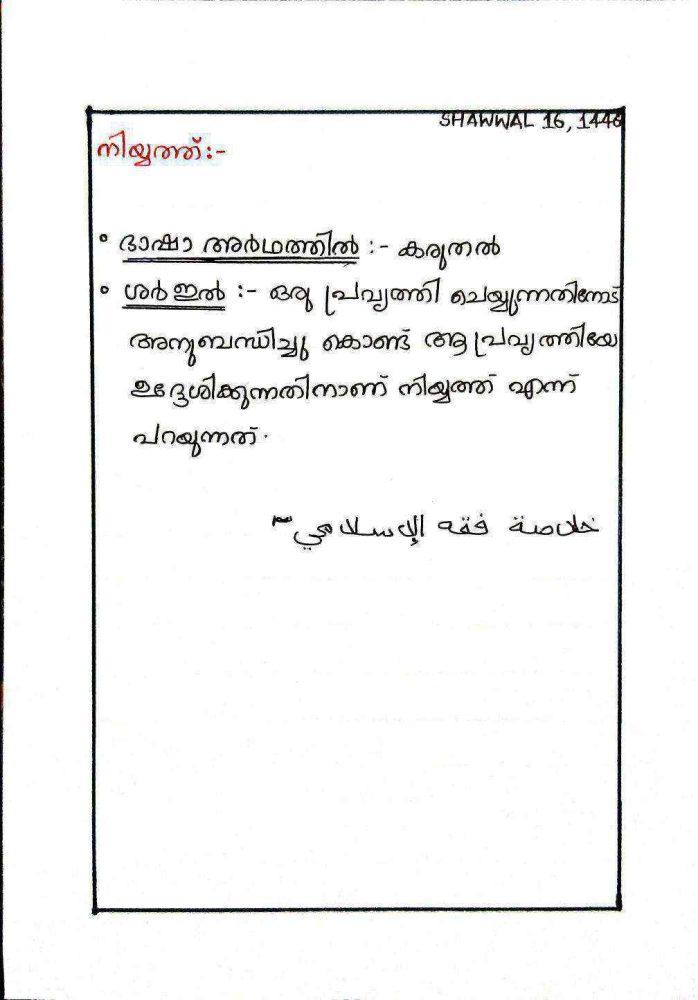 SHAWWAL 16, 1446
നിയ്യത്ത്:-
° ഭാഷാ അർഥത്തിൽ :- കരുതൽ
° ശർഇൽ :- ഒരു പ്രവൃത്തി ചെയ്യുന്നതിനോട്
അനുബന്ധിച്ചു കൊണ്ട് ആ പ്രവൃത്തിയേ
ഉദ്ദേശിക്കുന്നതിനാണ് നിയ്യത്ത് എന്ന്
പറയുന്നത്.
خلاصة فقه الإسلامي ~